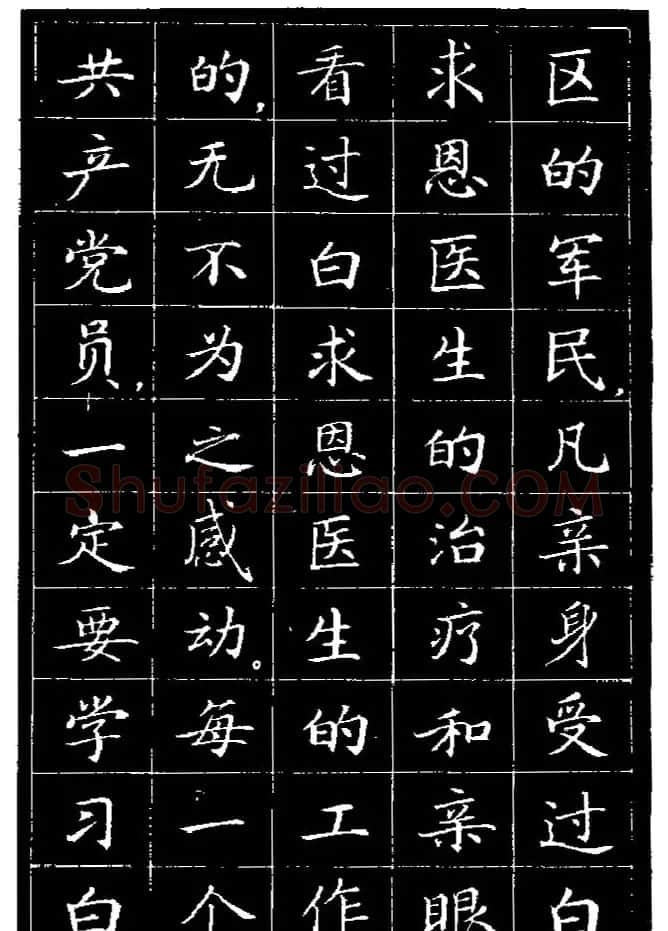 区的军民,凡亲身受过白
求恩医生的治疗和亲眼
看过白求恩医生的工作
的,无不为之感动。每一个
共产党员,一定要学习白
Shufaziliao.COM